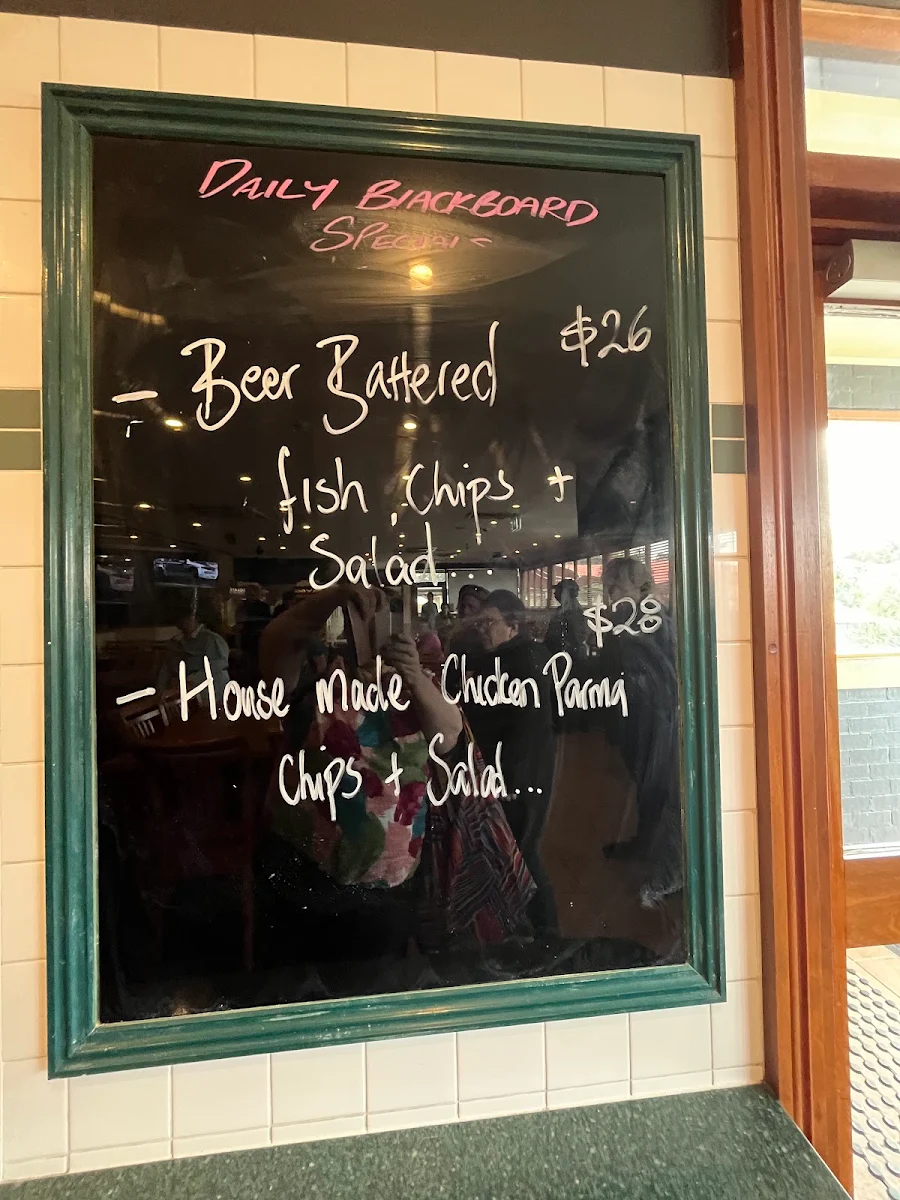 DAILY BLACKBOARD
SPECIALS
- Beer Battered $26
fish, Chips +
Salad...
$28
- House made Chicken Parma
Chips + Salad...